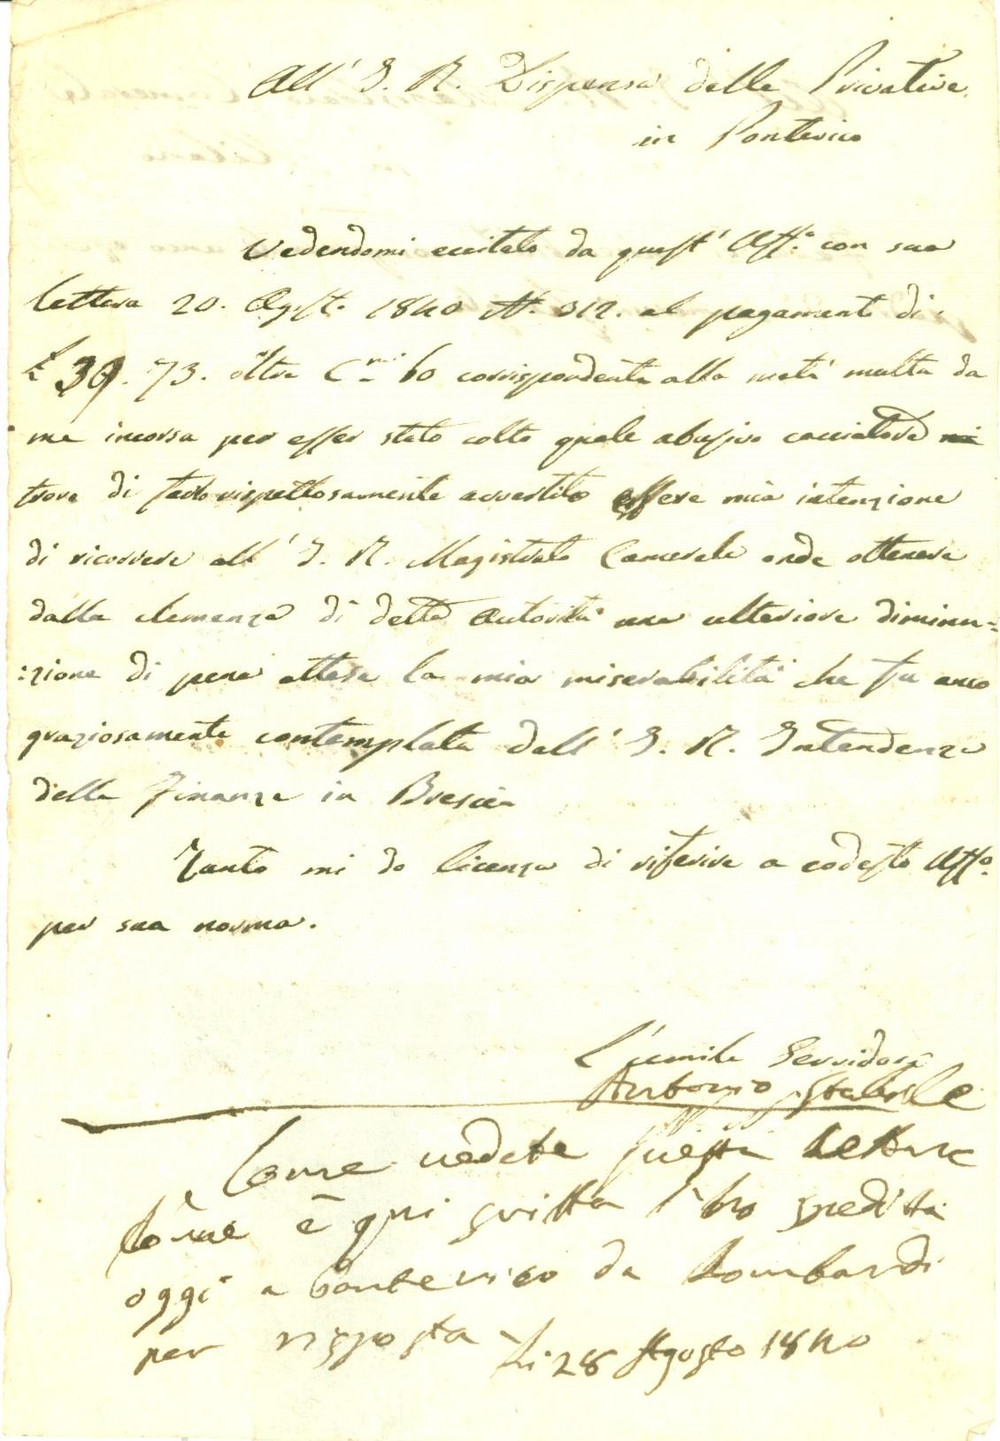 All' I. R. Dispensa delle Privative
in Pontevico
Vedendomi eccitato da quest' Uff.o con sua
lettera 20. Agost.o 1840 N. 312. al pagamento di
£ 39. 73. oltre C.mi 60 corrispondente alla metà multa da
me incorsa per esser stato colto quale abusivo cacciatore mi
trovo di farlo rispettosamente avvertito essere mia intenzione
di ricorrere all' I. R. Magistrato Camerale onde ottenere
dalla clemenza di detta autorità una ulteriore diminu=
:zione di pena attesa la mia miserabilità che fu anco
graziosamente contemplata dall' I. R. Intendenza
delle Finanze in Brescia
Tanto mi do licenza di riferire a codesto Uff.o
per sua norma.
L'umile Servidore
Antonio Stabile
Come vedete questa Lettera
Come è qui scritta l'ho spedita
oggi a Pontevico da Lombardi
per risposta Li 28 Agosto 1840